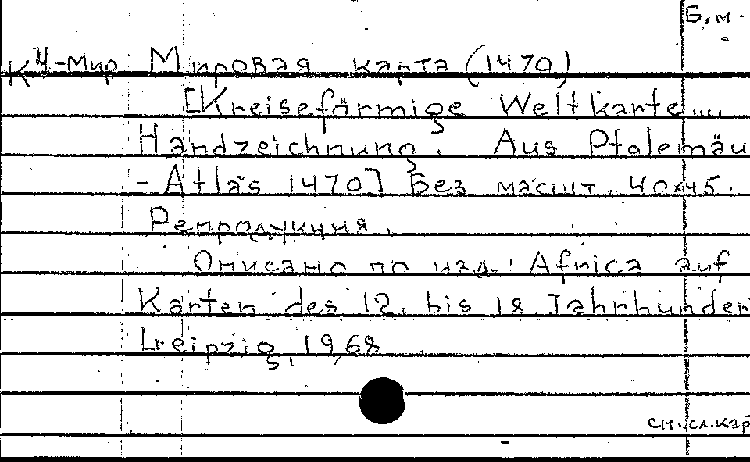 Б.м.
К Ч-Мир Мировая карта (1470)
[Kreiseförmige Weltkarte...
Handzeichnung. Aus Ptolemäu
- Atlas 1470] Без масшт. 40x45.
Репродукция.
Описано по изд.: Africa auf
Karten des 12. bis 18 Jahrhunder
Leipzig, 1968
см. сл. кар